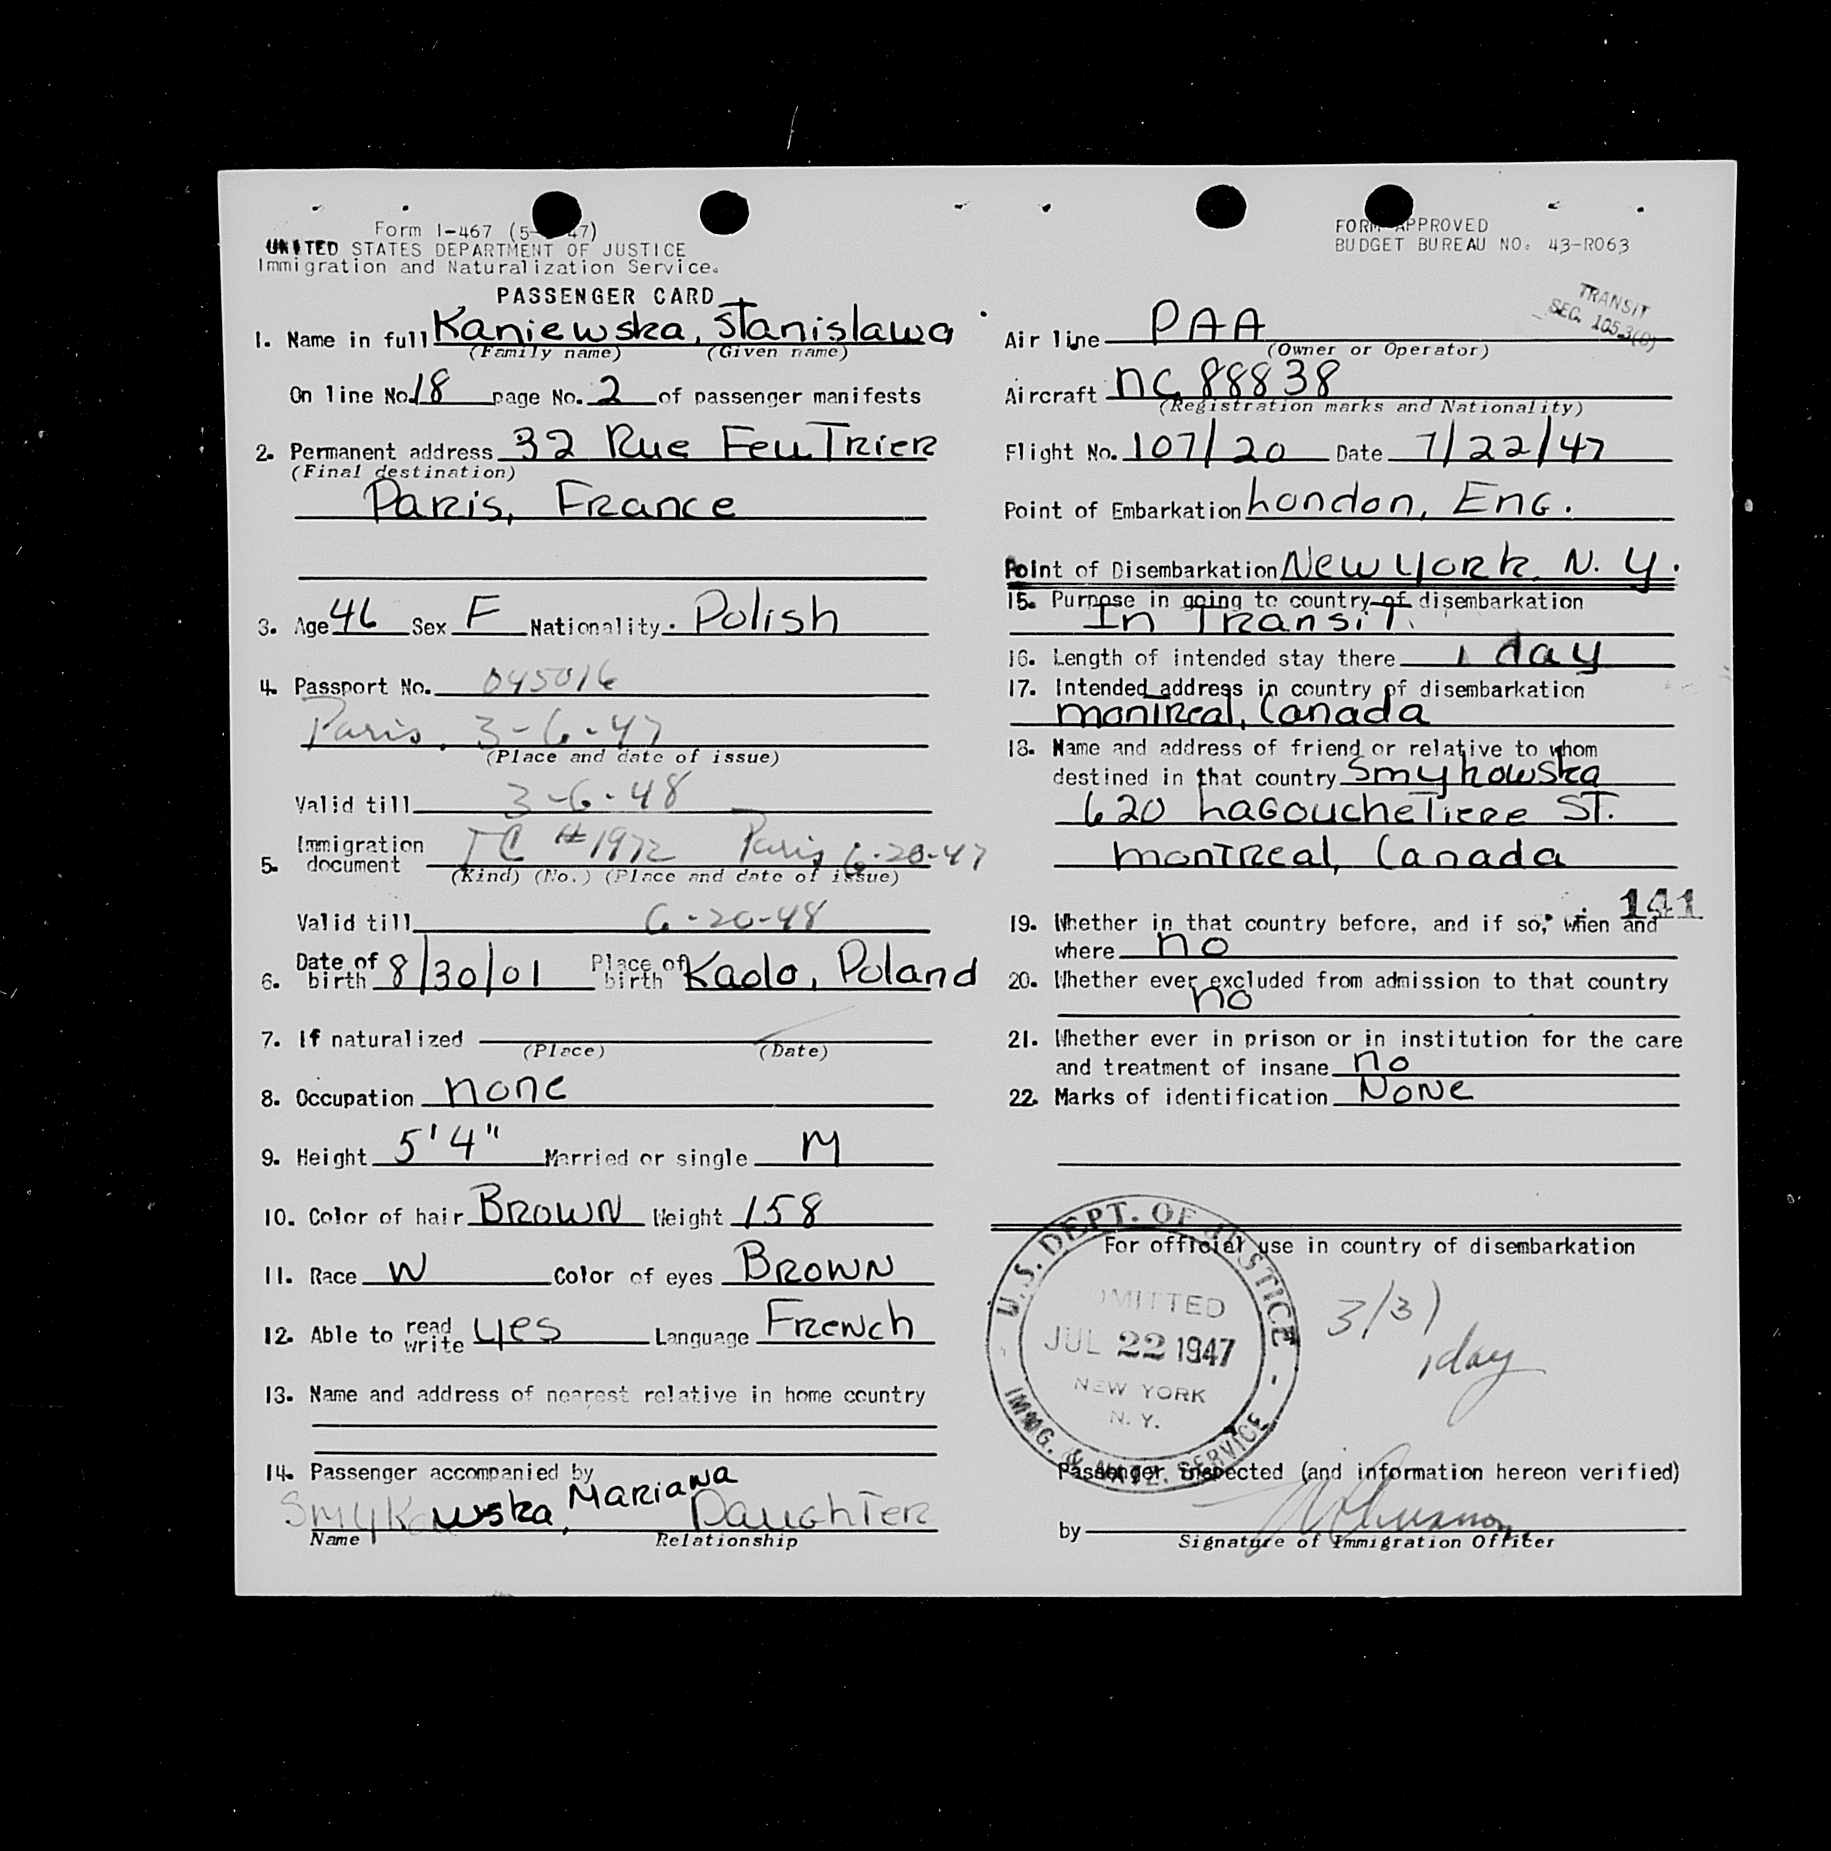 Form I-467 (5- -47)
UNITED STATES DEPARTMENT OF JUSTICE
Immigration and Naturalization Service.
PASSENGER CARD
1. Name in full Kaniewska, Stanislawa
(Family name) (Given name)
On line No. 18 page No. 2 of passenger manifests
2. Permanent address 32 Rue FeuTrier
(Final destination)
Paris, France
3. Age 46 Sex F Nationality. Polish
4. Passport No. 045016
Paris, 3-6-47
(Place and date of issue)
Valid till 3-6-48
5. Immigration document TC #1972 Paris 6-20-47
(Kind) (No.) (Place and date of issue)
Valid till 6-20-48
6. Date of birth 8/30/01 Place of birth Kaolo, Poland
7. If naturalized
(Place) (Date)
8. Occupation none
9. Height 5'4" Married or single M
10. Color of hair Brown Weight 158
11. Race W Color of eyes Brown
12. Able to read write yes Language French
13. Name and address of nearest relative in home country
14. Passenger accompanied by
Smykowska, Mariana Daughter
Name Relationship
FORM APPROVED
BUDGET BUREAU NO. 43-R063
TRANSIT
SEC. 105.3(6)
Air line PAA
(Owner or Operator)
Aircraft NC 88838
(Registration marks and Nationality)
Flight No. 107/20 Date 7/22/47
Point of Embarkation London, Eng.
Point of Disembarkation New York, N. Y.
15. Purpose in going to country of disembarkation
In Transit.
16. Length of intended stay there 1 day
17. Intended address in country of disembarkation
Montreal, Canada
18. Name and address of friend or relative to whom
destined in that country Smykowska
620 LagoucheTiere ST.
Montreal, Canada
141
19. Whether in that country before, and if so, when and
where no
20. Whether ever excluded from admission to that country
no
21. Whether ever in prison or in institution for the care
and treatment of insane no
22. Marks of identification None
For official use in country of disembarkation
U.S. DEPT. OF JUSTICE
IMMG. & NATZ. SERVICE
ADMITTED
JUL 22 1947
NEW YORK
N. Y.
3/31
1 day
Passenger inspected (and information hereon verified)
by
Signature of Immigration Officer